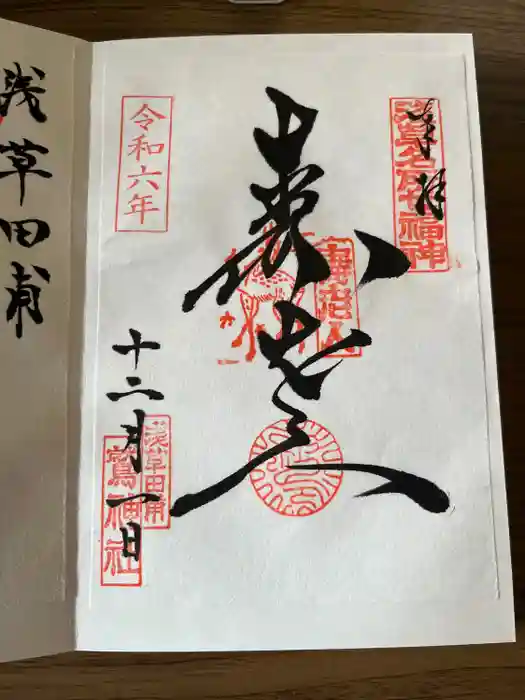 奉拝
浅草名所七福神
壽老人
壽老人
令和六年
十二月一日
浅草田甫
鷲神社
浅草田甫